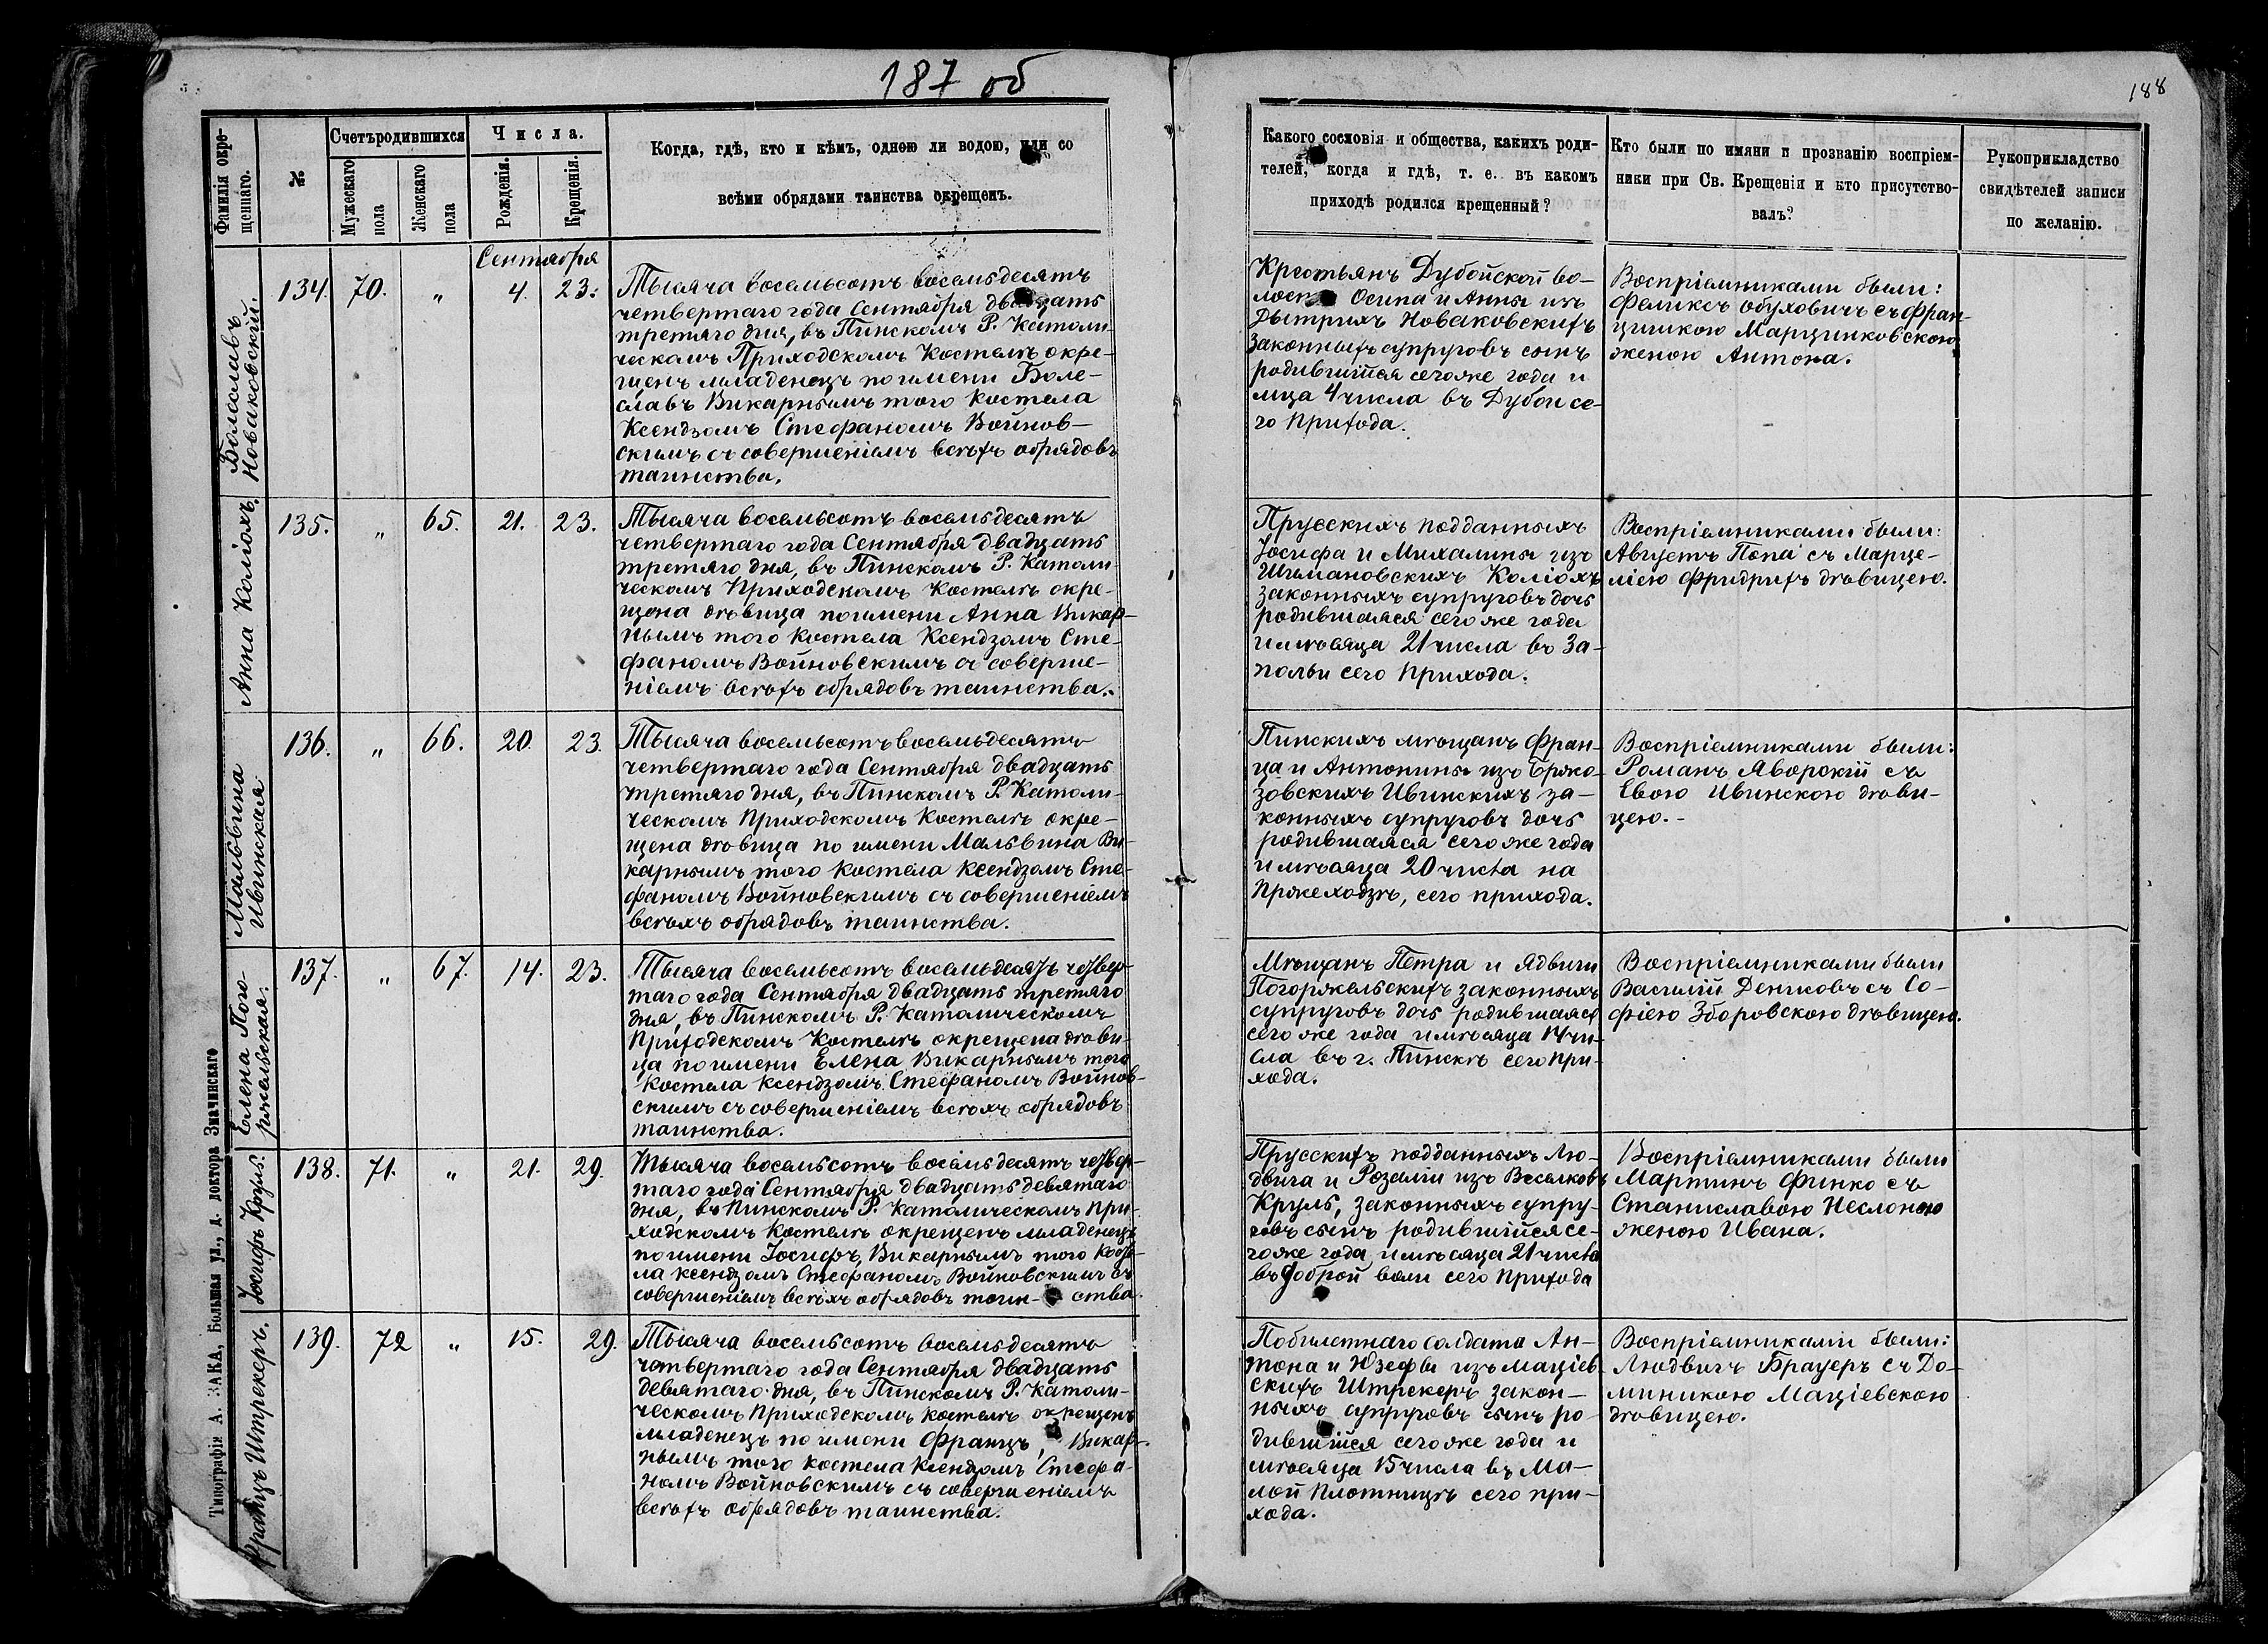 187 об
188
Фамилія окре-
щеннаго.
№
Счетъ родившихся
Мужескаго
пола
Женскаго
пола
Числа.
Рожденія.
Крещенія.
Когда, гдѣ, кто и кѣмъ, одною ли водою, или со
всѣми обрядами таинства окрещенъ.
Какого сословія и общества, какихъ роди-
телей, когда и гдѣ, т. е. въ какомъ
приходѣ родился крещенный?
Кто были по имяни и прозванію воспріем-
ники при Св. Крещенія и кто присутство-
валъ?
Рукоприкладство
свидѣтелей записи
по желанію.
Сентября
Болеславъ
Новаковскій.
134. 70. „ 4. 23.
Тысяча восемьсотъ восемьдесятъ
четвертаго года Сентября двадцать
третяго дня, въ Пинскомъ Р. Католи-
ческомъ Приходскомъ Костелѣ окре-
щенъ младенецъ по имени Боле-
славъ Викарнымъ того Костела
Ксендзомъ Стефаномъ Войнов-
скимъ съ совершеніемъ всѣхъ обрядовъ
таинства.
Крестьянъ Дубойской во-
лости Осипа и Анны изъ
Дытрихъ Новаковскихъ
законныхъ супруговъ сынъ
родившійся сего же года и
мца 4 числа въ Дубои се-
го Прихода.
Воспріемниками были:
Феликсъ Обуховичъ съ Фран-
цишкою Марцинковскою
женою Антона.
Анна Коліохъ.
135. „ 65. 21. 23.
Тысяча восемьсотъ восемьдесятъ
четвертаго года Сентября двадцать
третяго дня, въ Пинскомъ Р. Католи
ческомъ Приходскомъ Костелѣ окре-
щена дѣвица по имени Анна Викар-
нымъ того Костела Ксендзомъ Сте-
фаномъ Войновскимъ съ соверше-
ніемъ всѣхъ обрядовъ таинства.
Прусскихъ подданныхъ
Іосифа и Михалины изъ
Шимановскихъ Коліохъ
законныхъ супруговъ дочь
родившаяся сего же года
и мѣсяца 21 числа въ За-
польи сего Прихода.
Воспріемниками были:
Августъ Попа съ Марце-
лією Фридрихъ дѣвицею.
Мальвина
Ивинская
136. „ 66. 20. 23.
Тысяча восемьсотъ восемьдесятъ
четвертаго года Сентября двадцать
третяго дня, въ Пинскомъ Р. Католи-
ческомъ Приходскомъ Костелѣ окре-
щена дѣвица по имени Мальвина Ви-
карнымъ того Костела Ксендзомъ Сте-
фаномъ Войновскимъ съ совершеніемъ
всѣхъ обрядовъ таинства.
Пинскихъ мѣщанъ Фран-
ца и Антонины изъ Бржо-
зовскихъ Ивинскихъ за-
конныхъ супруговъ дочь
родившаяся сего же года
и мѣсяца 20 числа на
Пржеходзѣ, сего прихода.
Воспріемниками были:
Романъ Яворскій съ
Евою Ивинскою дѣви-
цею.-
Елена Пого-
ржельская.
137. „ 67. 14. 23.
Тысяча восемьсотъ восемьдесятъ четвер-
таго года Сентября двадцать третяго
дня, въ Пинскомъ Р. Католическомъ
Приходскомъ Костелѣ окрещена дѣви-
ца по имени Елена Викарнымъ того
Костела Ксендзомъ Стефаномъ Войнов-
скимъ съ совершеніемъ всѣхъ обрядовъ
таинства.
Мѣщанъ Петра и Ядвиги
Погоржельскихъ законныхъ
супруговъ дочь родившаяся
сего же года и мѣсяца 14 чи-
сла въ г. Пинскѣ сего при-
хода.
Воспріемниками были
Василій Денисовъ съ Со-
фіею Зборовскою дѣвицею.
Іосифъ Круль.
138. 71. „ 21. 29.
Тысяча восемьсотъ восемьдесятъ четвер-
таго года Сентября двадцать девятаго
дня, въ Пинскомъ Р. Католическомъ При-
ходскомъ Костелѣ окрещенъ младенецъ
по имени Іосифъ, Викарнымъ того Косте-
ла Ксендзомъ Стефаномъ Войновскимъ съ
совершеніемъ всѣхъ обрядовъ таин- ства.
Прусскихъ подданныхъ Лю-
двига и Розаліи изъ Веселковъ
Круль, законныхъ супру-
говъ сынъ родившійся се-
го же года и мѣсяца 21 числа
въ Доброй воли сего Прихода
Воспріемниками были
Мартинъ Финко съ
Станиславою Неслоною
женою Ивана.
Францъ Штрекеръ.
139. 72 „ 15. 29.
Тысяча восемьсотъ восемьдесятъ
четвертаго года Сентября двадцать
девятаго дня, въ Пинскомъ Р. Католи-
ческомъ Приходскомъ Костелѣ окрещенъ
младенецъ по имени Францъ, Викар-
нымъ того Костела Ксендзомъ Стефа-
номъ Войновскимъ съ совершеніемъ
всѣхъ обрядовъ таинства.
Побилетнаго солдата Ан-
тона и Юзефы изъ Маціев-
скихъ Штрекеръ закон-
ныхъ супруговъ сынъ ро-
дившійся сего же года и
мѣсяца 15 числа въ Ма-
лой Плотницѣ сего при-
хода.
Воспріемниками были:
Людвигъ Брауеръ съ До-
миникою Маціевскою
дѣвицею.
Типографія А. ЗАКА, Большая ул., д. доктора Значинскаго